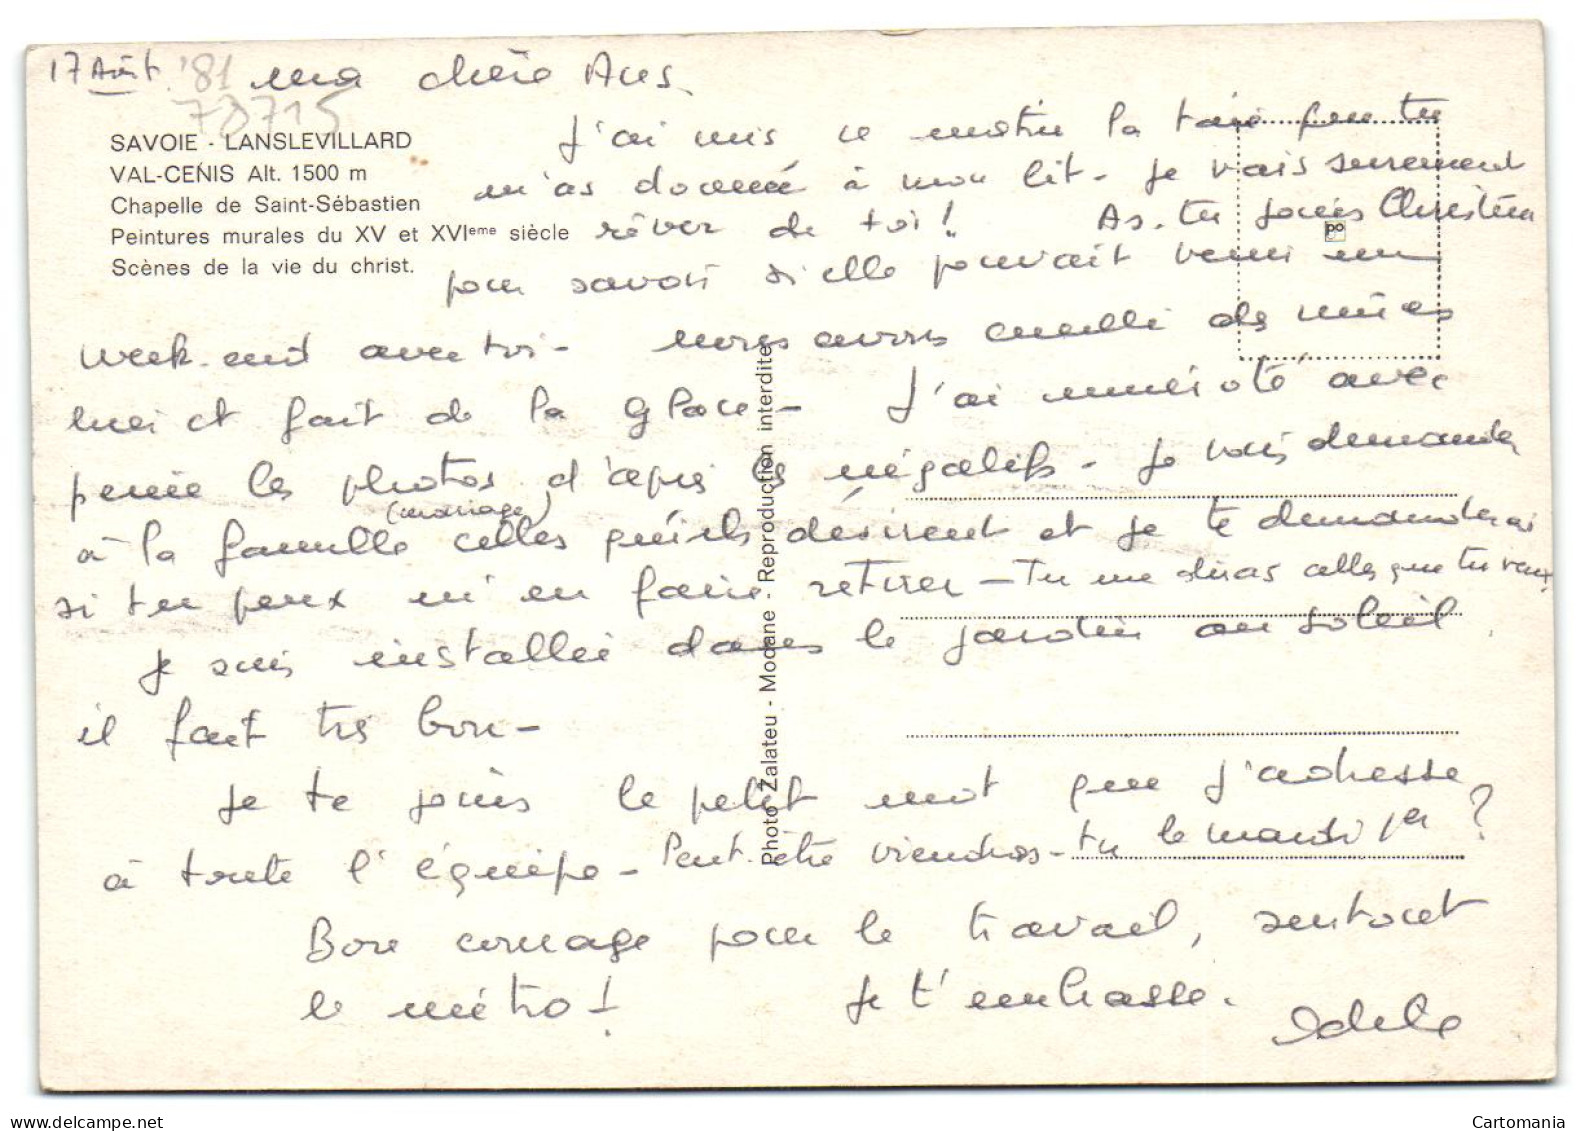 17 Août '81 ma chère Ans.
78715
SAVOIE - LANSLEVILLARD
VAL-CENIS Alt. 1500 m
Chapelle de Saint-Sébastien
Peintures murales du XV et XVIeme siècle
Scènes de la vie du christ.
J'ai mis ce matin la taie que tu
m'as donnée à mon lit - Je vais surement
rêver de toi! As-tu joint Christian
pour savoir si elle pouvait venir un
week-end avec toi - nous avons cueilli des mûres
hier et fait de la glace - J'ai numéroté avec
peine les photos d'après les négatifs - Je vais demander
(mariage)
à la famille celles qu'ils désirent et je te demanderai
si tu peux m'en faire retirer - Tu me diras celles que tu veux.
Je suis installée dans le jardin au soleil
il fait très bon -
Je te joins le petit mot que j'adresse
à toute l'équipe - Peut-être viendras-tu le mardi 1er ?
Bon courage pour le travail, surtout
le métro! Je t'embrasse.
Adele
Photo Zalateu - Modane - Reproduction interdite
po
www.delcampe.net
Cartomania